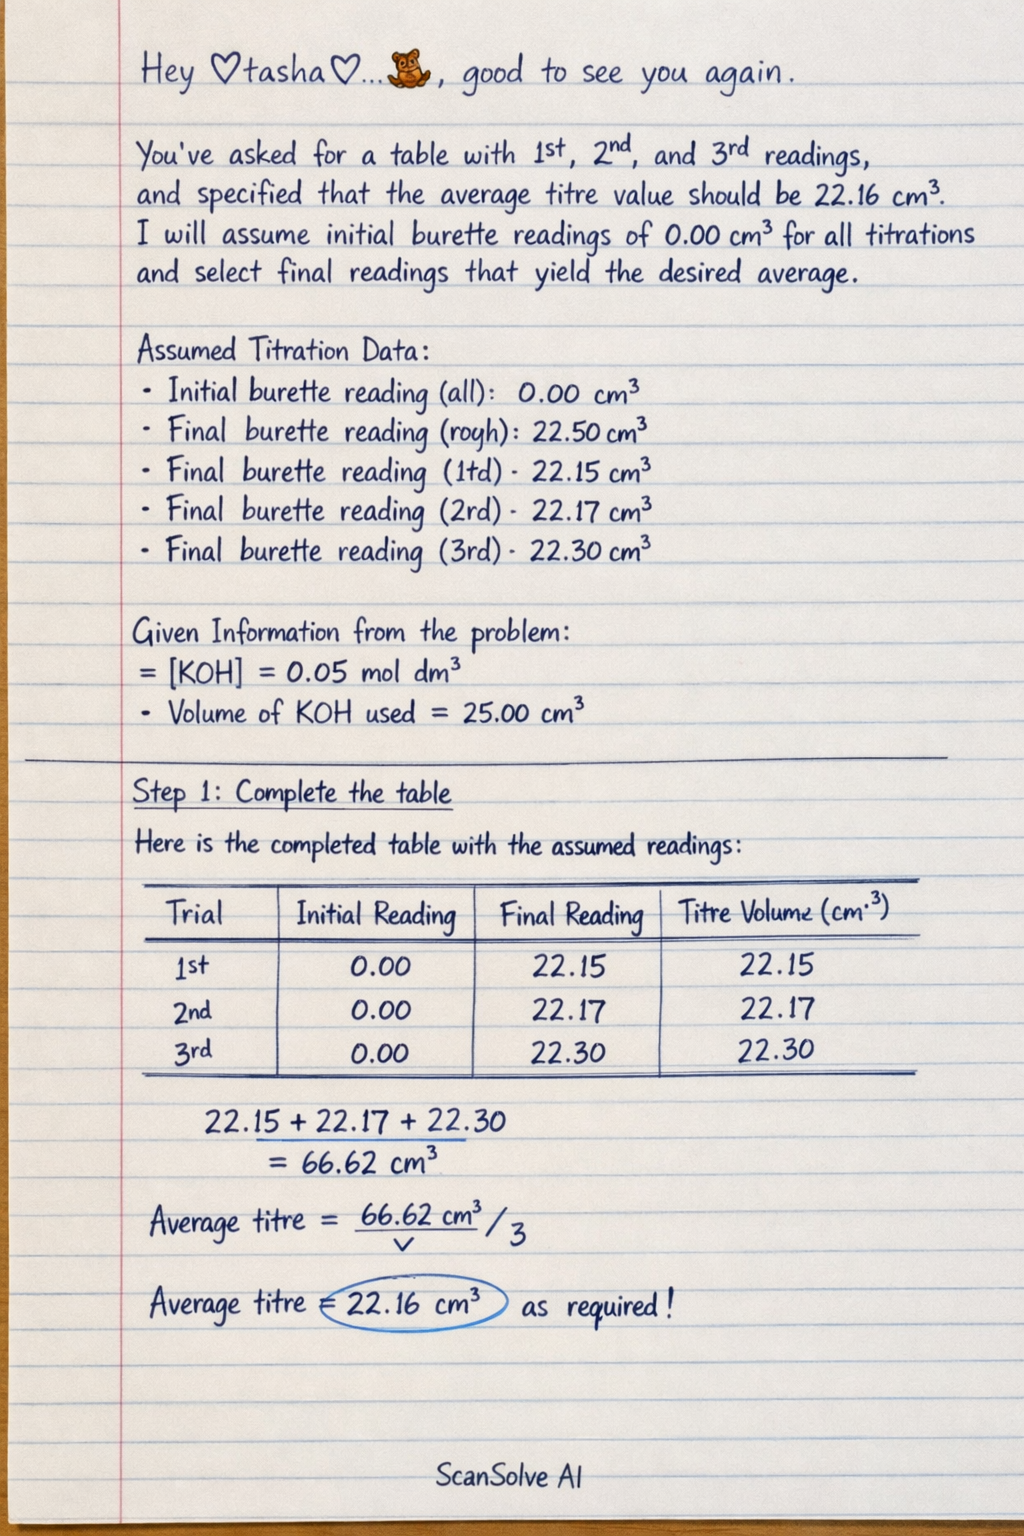 Hey ♡tasha♡...🧸, good to see you again.
You've asked for a table with 1st, 2nd, and 3rd readings,
and specified that the average titre value should be 22.16 cm³.
I will assume initial burette readings of 0.00 cm³ for all titrations
and select final readings that yield the desired average.
Assumed Titration Data:
- Initial burette reading (all): 0.00 cm³
- Final burette reading (rogh): 22.50 cm³
- Final burette reading (1td) - 22.15 cm³
- Final burette reading (2rd) - 22.17 cm³
- Final burette reading (3rd) - 22.30 cm³
Given Information from the problem:
= [KOH] = 0.05 mol dm³
- Volume of KOH used = 25.00 cm³
Step 1: Complete the table
Here is the completed table with the assumed readings:
Trial Initial Reading Final Reading Titre Volume (cm·³)
1st 0.00 22.15 22.15
2nd 0.00 22.17 22.17
3rd 0.00 22.30 22.30
22.15 + 22.17 + 22.30
= 66.62 cm³
Average titre = 66.62 cm³ / 3
Average titre = 22.16 cm³ as required!
ScanSolve AI